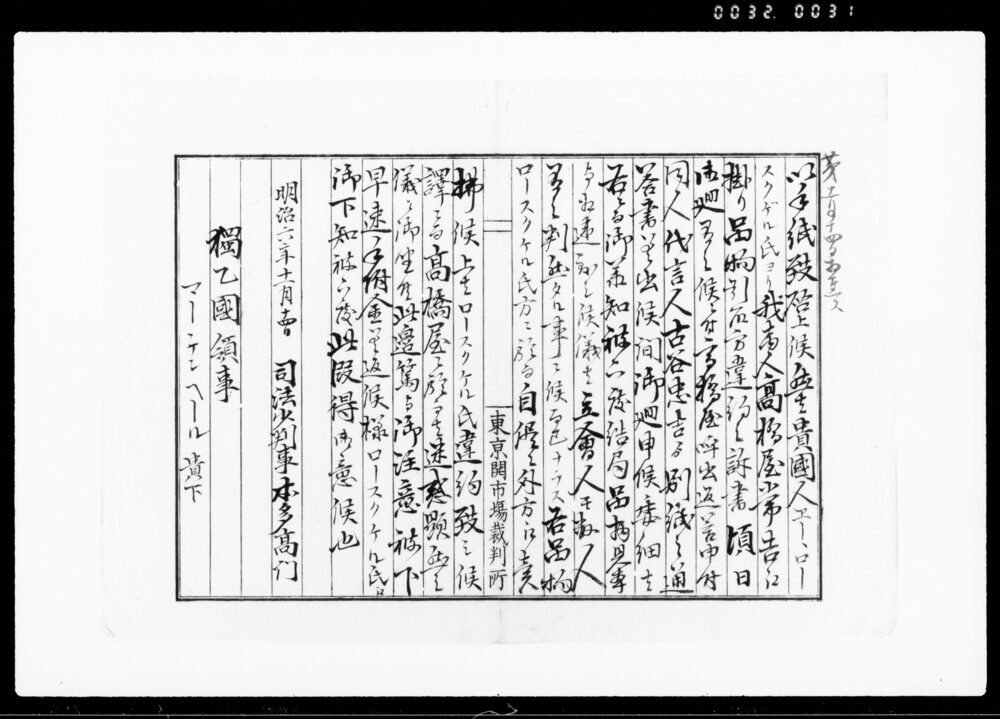 0032 0031
以手紙致啓上候然者貴國人エーロー
スクゲル氏ヨリ我商人高橋屋小常吉江
掛り品物引取方違約之訴書頃日
御廻有之候ニ付高橋屋呼出返答申付
同人代言人古谷忠吉ゟ別紙之通
答書差出候間御廻申候委細者
右ニ而御承知被下度結局品物見本
与相違致し候儀者立會人モ数人
有之判然タル事ニ候而已ナラス右品物
ロースクケル氏方ニ於而自侭之外方江賣
東京開市場裁判所
拂候上者ロースクケル氏違約致し候
譯ニ而高橋屋ニ於而者迷惑顕然之
儀ニ御坐候此邊篤与御注意被下
早速手附金差返候様ロースクケル氏江
御下知被下度此段得御意候也
明治六年十一月
司法大判事本多高
獨乙國領事
マーテンヘール 貴下